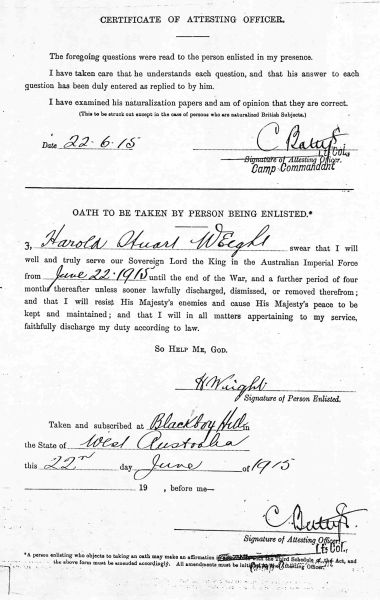 CERTIFICATE OF ATTESTING OFFICER.
The foregoing questions were read to the person enlisted in my presence.
I have taken care that he understands each question, and that his answer to each
question has been duly entered as replied to by him.
I have examined his naturalization papers and am of opinion that they are correct.
(This to be struck out except in the case of persons who are naturalized British Subjects.)
Date 22.6.15
Lt Col.,
Signature of Attesting Officer.
Camp Commandant
OATH TO BE TAKEN BY PERSON BEING ENLISTED.*
I, Harold Stuart Wright swear that I will
well and truly serve our Sovereign Lord the King in the Australian Imperial Force
from June 22.1915 until the end of the War, and a further period of four
months thereafter unless sooner lawfully discharged, dismissed, or removed therefrom;
and that I will resist His Majesty's enemies and cause His Majesty's peace to be
kept and maintained; and that I will in all matters appertaining to my service,
faithfully discharge my duty according to law.
SO HELP ME, GOD.
H Wright
Signature of Person Enlisted.
Taken and subscribed at Blackboy Hill in
the State of West Australia
this 22nd day June of 1915
19 , before me—
Signature of Attesting Officer.
Lt Col.,
*A person enlisting who objects to taking an oath may make an affirmation the Third Schedule of the Act, and
the above form must be amended accordingly. All amendments must be initialled by the Attesting Officer.